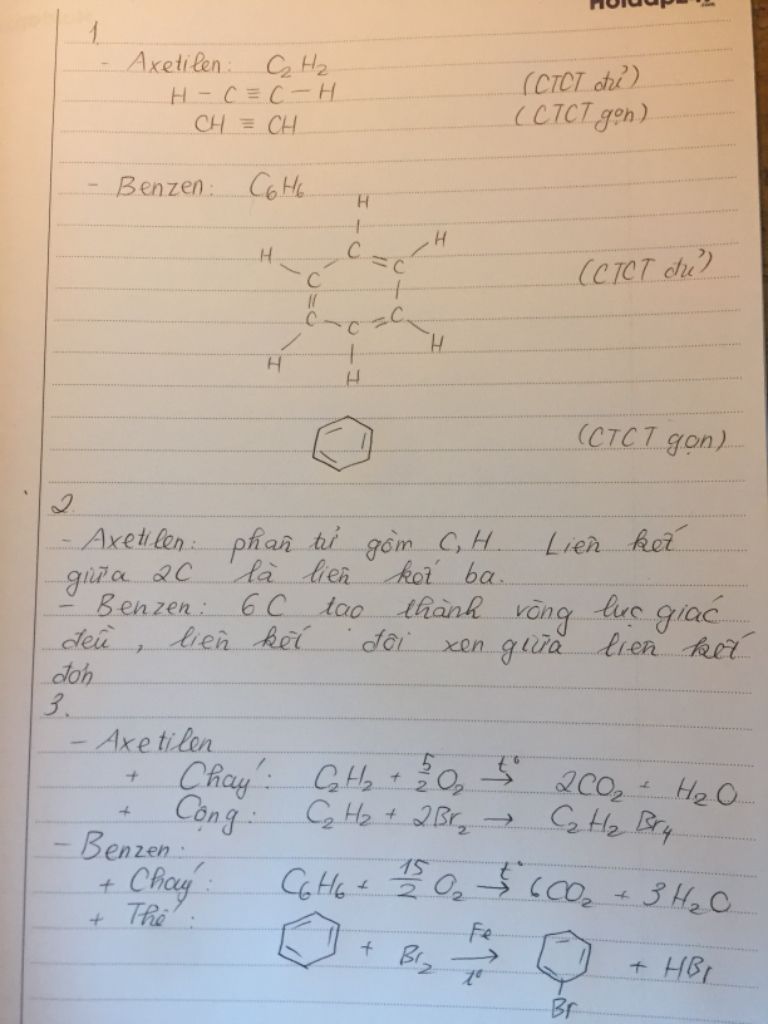 1.
- Axetilen: C₂H₂
H - C ≡ C - H (CTCT đủ)
CH ≡ CH (CTCT gọn)
- Benzen: C₆H₆
H
H C H
C = C (CTCT đủ)
C - C = C
H H H
(CTCT gọn)
2.
- Axetilen: phân tử gồm C, H. Liên kết
giữa 2C là liên kết ba.
- Benzen: 6 C tạo thành vòng lục giác
đều, liên kết đôi xen giữa liên kết
đơn
3.
- Axetilen
+ Cháy: C₂H₂ + 5/2 O₂ →(t°) 2CO₂ + H₂O
+ Cộng: C₂H₂ + 2Br₂ → C₂H₂Br₄
- Benzen:
+ Cháy: C₆H₆ + 15/2 O₂ →(t°) 6CO₂ + 3H₂O
+ Thế:
+ Br₂ →(Fe, t°) + HBr
Br